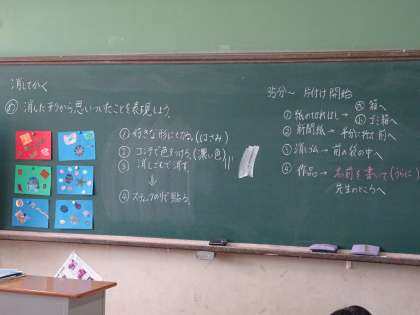 消してかく
め 消した形から思いついたことを表現しよう。
① 好きな形にきる。(はさみ)
② コンテで色をつける。(濃い色)
③ 消しごむで消す
⇩
④ スティックのりで貼る。
35分〜 片付け開始
① 紙の切れはし→ 大 箱へ
小 ゴミ箱へ
② 新聞紙→ 半分に折り前へ
③ 消しゴム→ 前の袋の中へ
④ 作品→ 名前を書いて(うらに)
先生のところへ